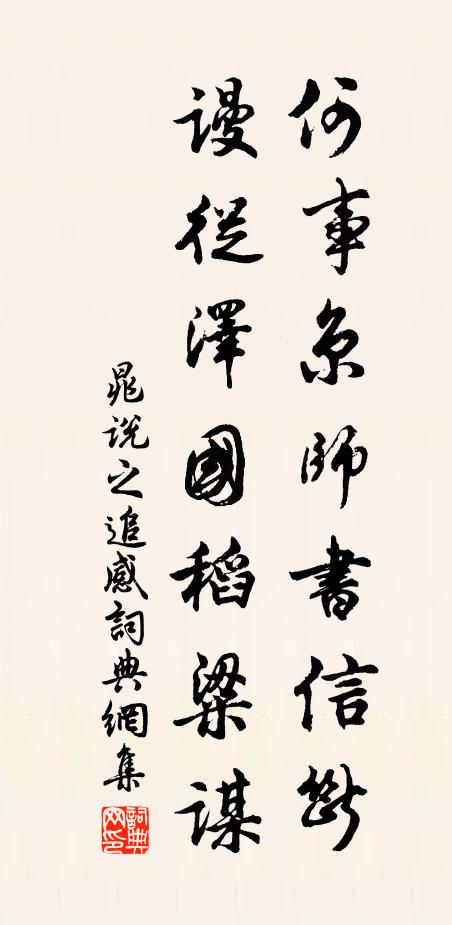 何事京師書信斷
謾從澤國稻粱謀
晁說之追感詞典網集
詞典網印